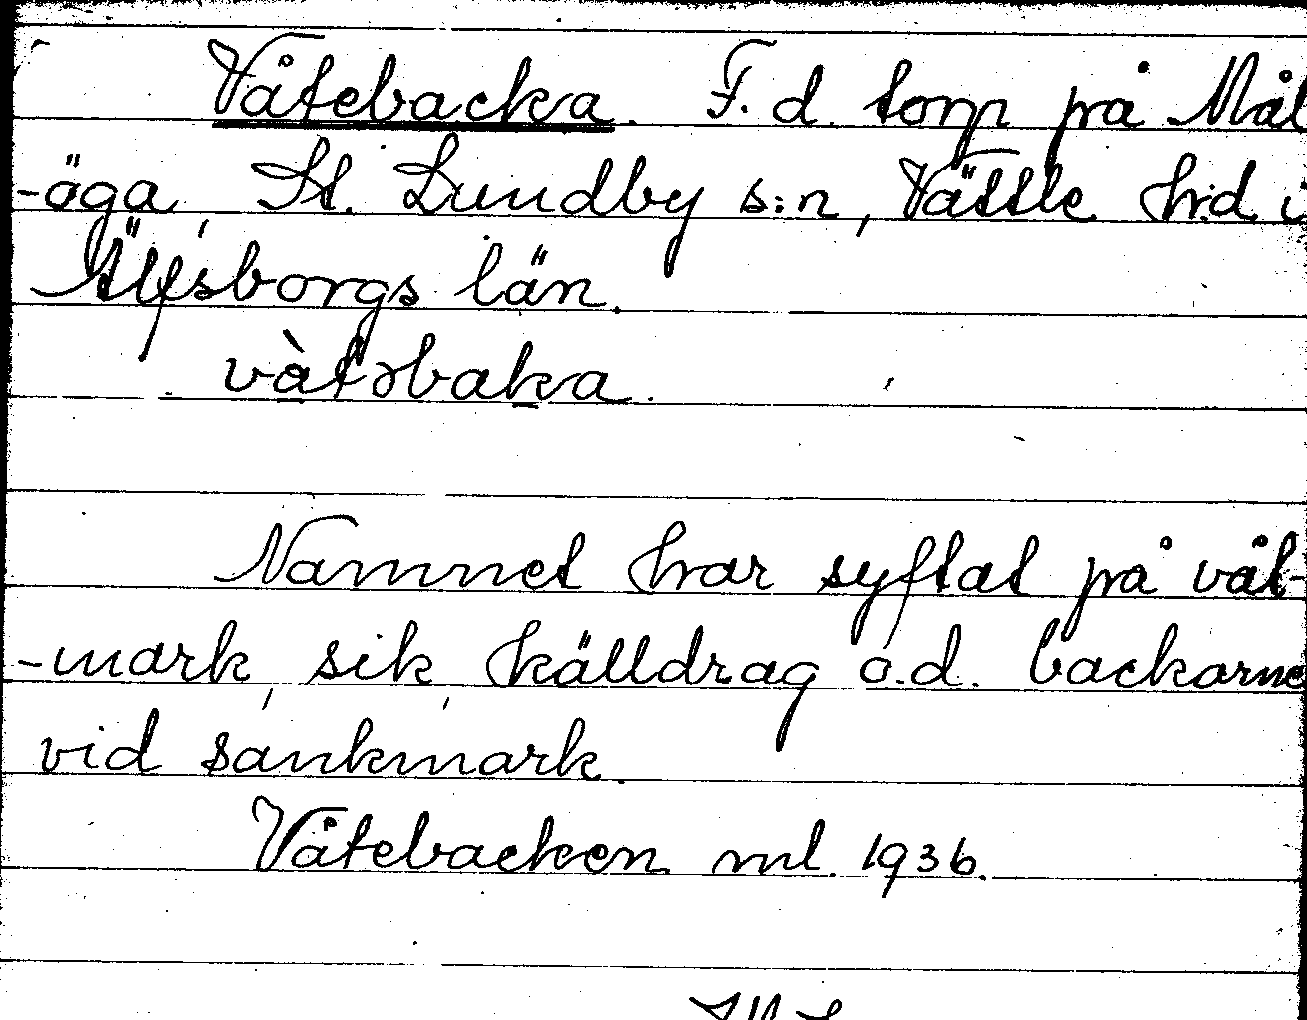 Våtebacka. F. d. torp på Mål-
-öga, St. Lundby s:n, Vättle h:d i
Älfsborgs län.
vàtəbaka.
Namnet har syftat på våt-
-mark, sik, källdrag o.d. backarne
vid sankmark.
Våtebacken ml. 1936.